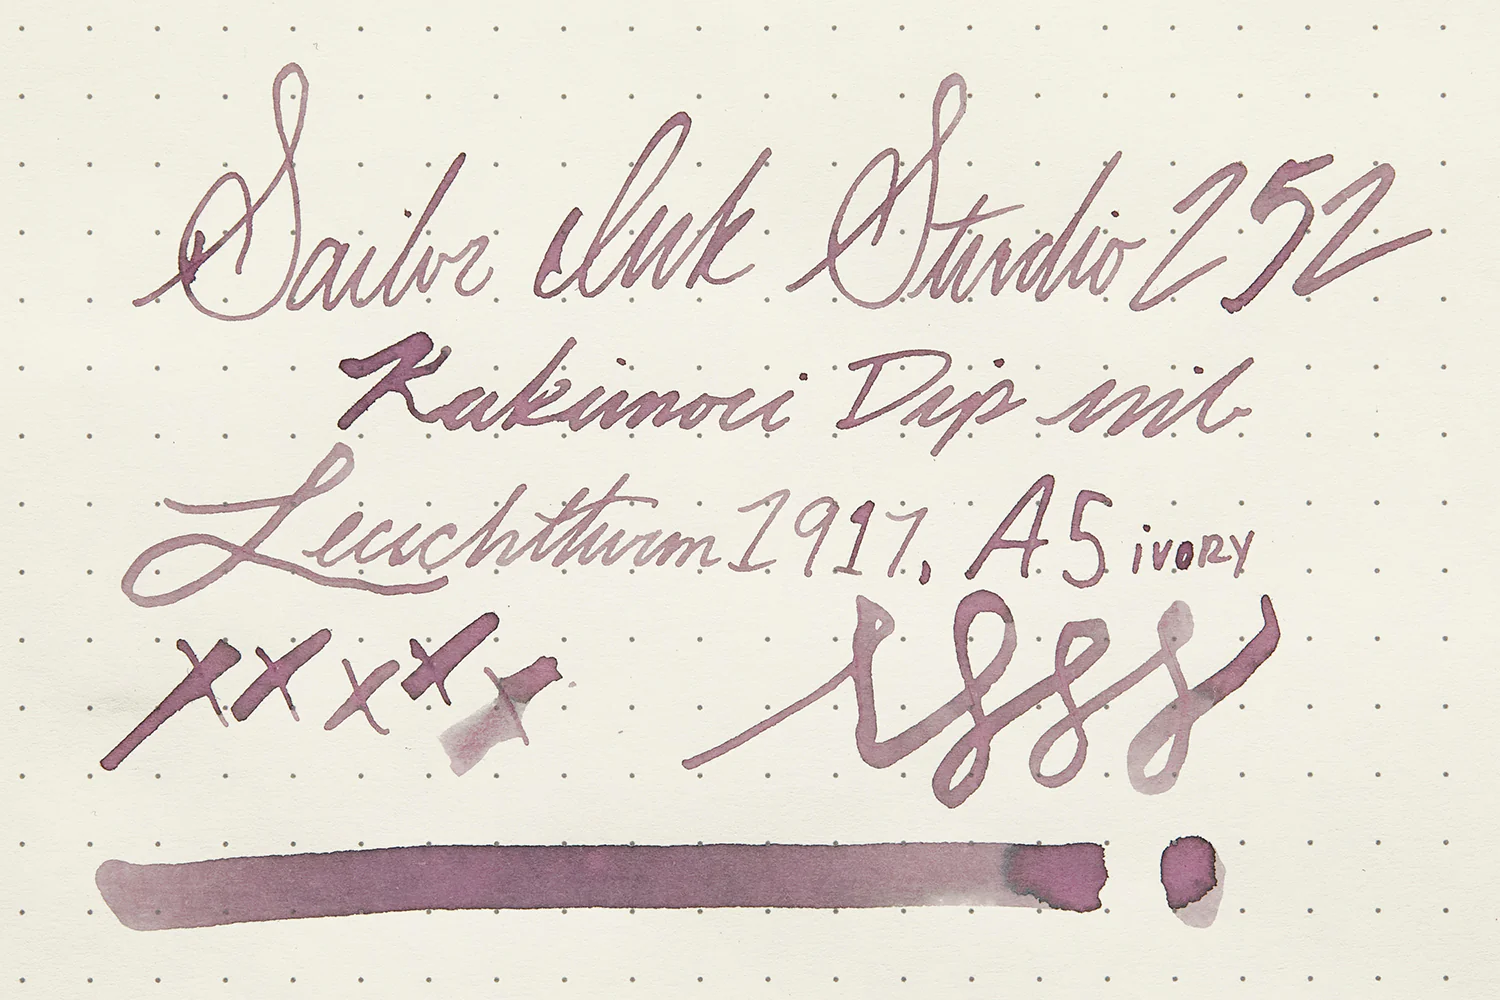 Sailor Ink Studio 252
Kakimori Dip nib
Leuchtturm 1917, A5 ivory
xxxxx